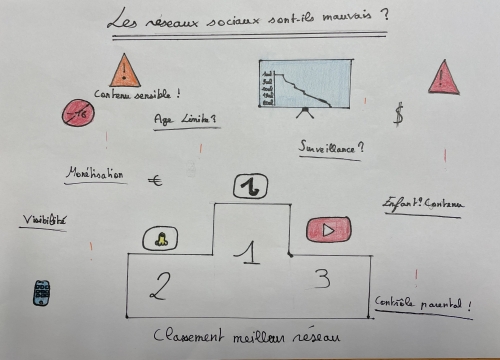 Les réseaux sociaux sont-ils mauvais ?
!
!
Contenu sensible !
-16
Age limite ?
$
Surveillance ?
Monétisation
€
Enfant ? Contenu
Visibilité
1
2
3
Contrôle parental !
Classement meilleur réseau